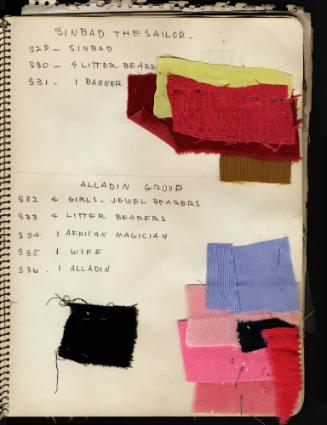 SINBAD THE SAILOR -
S29 - SINBAD
S30 - 4 LITTER BEARE
S31 - 1 BANNER
ALLADIN GROUP
S32 4 GIRLS - JEWEL BEARERS
S33 4 LITTER BEARERS
S34 1 AFRICAN MAGICIAN
S35 1 WIFE
S36 . 1 ALLADIN